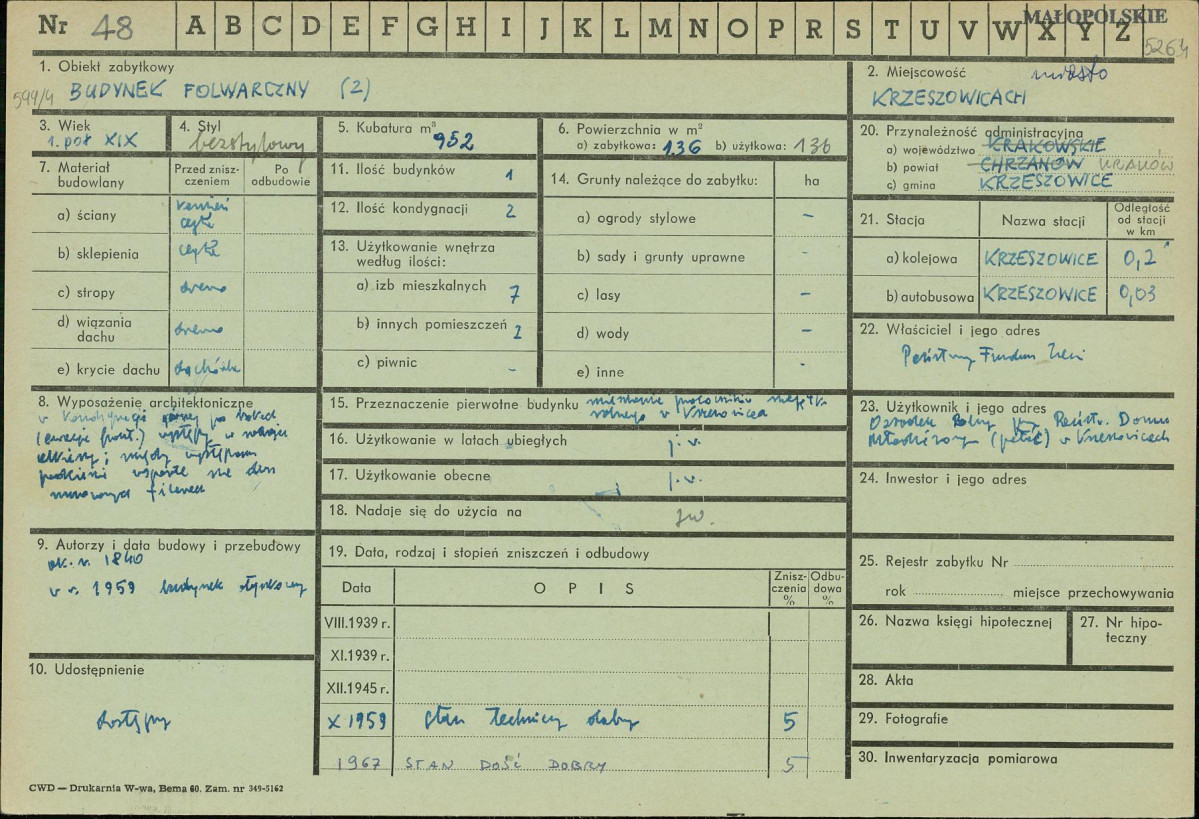 Nr 48 A B C D E F G H I J K L M N O P R S T U V W X Y Z
MAŁOPOLSKIE
5264
1. Obiekt zabytkowy
599/4 BUDYNEK FOLWARCZNY (2)
2. Miejscowość miasto
KRZESZOWICACH
3. Wiek
1. poł XIX
4. Styl
bezstylowy
5. Kubatura m³
952
6. Powierzchnia w m²
a) zabytkowa: 136 b) użytkowa: 136
20. Przynależność administracyjna
a) województwo KRAKOWSKIE
b) powiat CHRZANÓW KRAKÓW
c) gmina KRZESZOWICE
7. Materiał budowlany
Przed zniszczeniem
Po odbudowie
a) ściany kamień
cegła
b) sklepienia cegła
c) stropy drewno
d) wiązania dachu drewno
e) krycie dachu dachówka
11. Ilość budynków 1
12. Ilość kondygnacji 2
13. Użytkowanie wnętrza
według ilości:
a) izb mieszkalnych 7
b) innych pomieszczeń 2
c) piwnic -
14. Grunty należące do zabytku: ha
a) ogrody stylowe -
b) sady i grunty uprawne -
c) lasy -
d) wody -
e) inne -
21. Stacja
Nazwa stacji
Odległość od stacji w km
a) kolejowa KRZESZOWICE 0,2
b) autobusowa KRZESZOWICE 0,03
22. Właściciel i jego adres
Państwowy Fundusz Ziemi
8. Wyposażenie architektoniczne
w kondygnacji po bokach
(elewacja front.) występy w rodzaju
; między występami
podcienie wsparte na dwu
murowanych filarach
15. Przeznaczenie pierwotne budynku mieszkanie pracowników
w Krzeszowicach
16. Użytkowanie w latach ubiegłych j.w.
17. Użytkowanie obecne j.w.
18. Nadaje się do użycia na jw.
23. Użytkownik i jego adres
Ośrodek Rolny przy Państw. Domu
Młodzieży w Krzeszowicach
24. Inwestor i jego adres
9. Autorzy i data budowy i przebudowy
ok. r. 1840
w r. 1959 budynek
10. Udostępnienie
dostępny
19. Data, rodzaj i stopień zniszczeń i odbudowy
Data OPIS Zniszczenia % Odbudowa %
VIII.1939 r.
XI.1939 r.
XII.1945 r.
X 1959 stan techniczny słaby 5
1967 STAN DOŚĆ DOBRY 5
25. Rejestr zabytku Nr
rok miejsce przechowywania
26. Nazwa księgi hipotecznej
27. Nr hipoteczny
28. Akta
29. Fotografie
30. Inwentaryzacja pomiarowa
CWD — Drukarnia W-wa, Bema 60. Zam. nr 349-5162